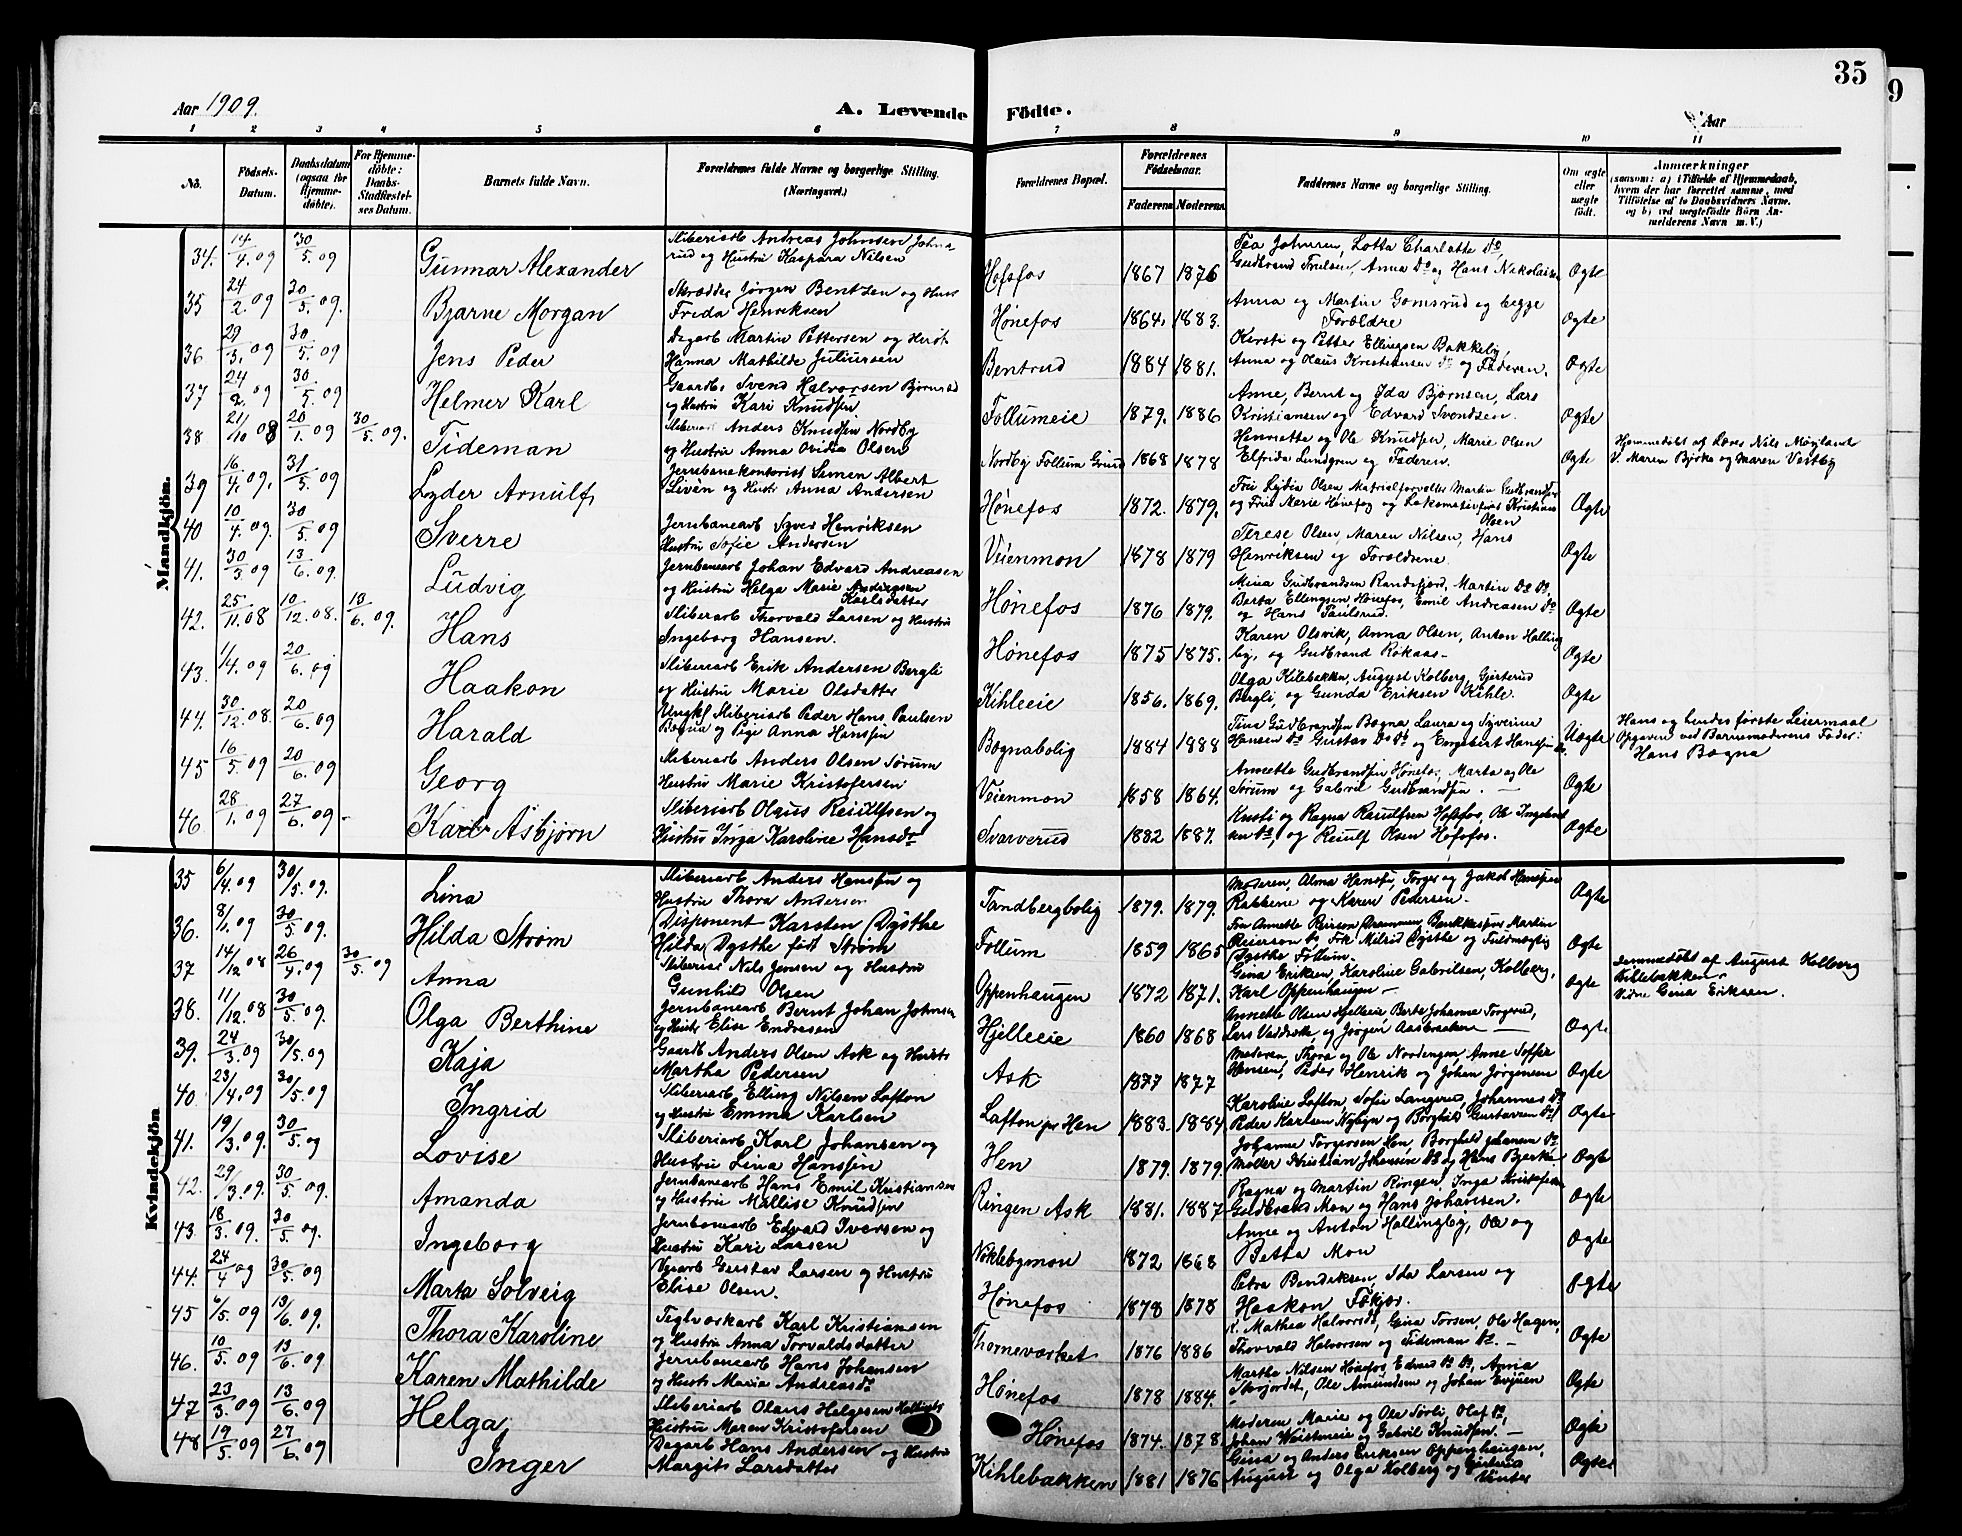 35
9
Aar 1909.
A. Levende Födte.
Aar
1 2 3 4 5 6 7 8 9 10 11
No. Födsels-Datum. Daabsdatum (ogsaa for Hjemmedöbte). For Hjemmedöbte: Daabs-Stadfæstelses Datum. Barnets fulde Navn. Forældrenes fulde Navne og borgerlige Stilling. (Næringsvei.) Forældrenes Bopæl. Forældrenes Födselsaar. Faderens Moderens Faddernes Navne og borgerlige Stilling. Om ægte eller uægte födt. Anmærkninger (saasom: a) i Tilfælde af Hjemmedaab, hvem der har forrettet samme, med Tilföielse af to Daabsvidners Navne. og b) ved uægtefödte Börn Anmelderens Navn m. V.)
Mandkjön.
34. 14/4.09 30/5.09 Gunnar Alexander Sliberiarb Andreas Johnsen Johnsrud og Hustru Kaspara Nilsen Hofsfos 1867 1876 Gudbrand Anna Do og Hans Nikolaisen Ægte
35 24/2.09 30/5.09. Bjarne Morgan Skrædder Jørgen Bentzen og Hust Frida Henriksen Hønefos 1864. 1883. Anna og Martin Gomsrud og begge Foroldre Ægte
36 29/3.09 30/5.09 Jens Peder Dagarb Martin Pettersen og Hustr Hanna Mathilde Juliussen Bentrud 1884 1881. Kirsti og Petter Ellingsen Bakkeby, Anna og Olaus Kristiansen Do og Faderen. Ægte
37 24/2.09 30/5.09 Helmer Karl Gaardbr Svend Halvorsen Bjørnstad og Hustr Kari Knudsen Follumeie 1879. 1886 Anne, Bernt og Ida Bjørnsen, Lars Kristiansen og Edvard Svendsen. Ægte
38 21/10 08 20/1.09 30/5.09. Tideman Sliberiarb Anders Knudsen Nordby og Hustru Anna Ovidia Olsen Nordby Follum Grund 1868 1878 Henriette og Ole Knudsen, Marie Olsen Elfrida Lundgren og Faderen. Ægte Hjemmedøbt af Lærer Nils Møyland V. Maren Bjørke og Maren Vestby
39 16/4.09. 31/5.09 Lyder Arnulf Jernbanekontorist Simen Albert Livèn og Hust Anna Andersen Hønefos 1872. 1879. Fru Lydia Olsen Matrialforvalter Martin og Frue Marie Hønefos og Lokomotivfører Kristian Olsen Ægte
40 10/4.09. 30/5.09 Sverre Jernbanearb Syver Henriksen Hustru Sofie Andersen Veienmon 1878 1879 Terese Olsen, Maren Nilsen, Hans Henriksen og Foroldrene Ægte
41. 30/3.09 13/6.09. Ludvig Jernbanearb Johan Edvard Andreasen og Hustru Helga Marie Andersen Karlsdatter Hønefos 1876 1879. Mina Gudbrandsen Randsfjord, Martin Do Do, Berta Ellingsen Hønefos, Emil Andreasen Do og Hans Paulsrud. Ægte
42. 25/11.08 10/12.08. 13/6.09. Hans Sliberiarb Thorvald Larsen og Hustru Ingeborg Hansen. Hønefos 1875 1875. Karen Olsvik, Anna Olsen, Anton Hallingby, og Gudbrand Rokaas— Ægte
43. 1/4.09 20/6.09 Haakon Sliberiarb Erik Andersen Bergli og Hustru Marie Olsdatter Kihleeie 1856. 1869. Olga Kilebakken, August Kolberg, Gjeterud Bergli, og Gunda Eriksen Kihle. Ægte
44. 30/12.08. 20/6.09 Harald Ungkf Sliberiarb Peder Hans Paulsen Bogna og Pige Anna Hanssen Bognabolig 1884 1888 Tina Gudbrandsen Bogna Laura og Syverine Hansen Do Gustav Do Do og Engebert Hanssen Do Uægte Hans og hendes første Leiermaal Opgaven ved Barnemoderens Fader: Hans Bogna
45 16/5.09 20/6.09 Georg Sliberiarb Anders Olsen Sørum Hustru Marie Kristofersen Veienmon 1858 1864. Annette Gudbrandsen Hønefos, Marta og Ole Sørum og Gabriel Gudbrandsen. — Ægte
46. 28/1.09 27/6.09 - Karl Asbjørn Sliberiarb Olaus Reiulfsen og Hustru Inga Karoline Hansdr Svarverud 1882 1887. Kristi og Ragna Reiulfsen Hofsfos, Ole Do, og Reiulf Olsen Hofsfos. Ægte
Kvindekjön
35 6/4.09 30/5.09. Lina Sliberiarb Anders Hanssen og Hustru Thora Andersen Tandbergbolig 1879. 1879. Moderen, Alma Hanssen, Torger og Jakob Hanssen Bakkene og Karen Pedersen. Ægte
36. 8/1.09 30/5 09. Hilda Strøm Disponent Karsten Dysthe Hilda Dysthe født Strøm Follum 1859 1865 Fru Annette Reirson Drammen Bankkasjer Martin Reierson Do, Frk Milrid Dysthe og Fuldmægtig Dysthe Follum. Ægte
37 14/12 08 26/4.09 30/5.09 Anna Sliberiarb Nils Jensen og Hustru Gunhild Olsen Oppenhaugen 1872 1871. Gina Eriksen, Karoline Gabrielsen, Kolberg, Karl Oppenhaugen — Ægte Hjemmedøbt af August Kolberg Kilebakken Vidne Gina Eriksen.
38. 11/12.08 30/5.09. Olga Berthine Jernbanearb Bernt Johan Johnsen og Hust Elise Endresen Hjelleeie 1860 1868 Annette Olsen Hjelleeie, Berte Johanne Torgerud, Lars og Jørgen Aasbraaten — Ægte
39. 24/3.09 30/5.09 Kaja Gaardb Anders Olsen Ask og Hustr Martha Pedersen Ask 1877 1877 Moderen, Thora og Ole Nordengen, Anne Soffie Hansen, Peder Henrik og Johan Jørgensen Ægte
40. 23/4.09 30/5.09 Ingrid Sliberiarb Elling Nilsen Lofton og Hustru Emma Karlsen Lafton pr Hen 1883. 1884 Karoline Lofton, Sofie Langerud, Johannes Do Peder Karlsen og Gustavsen Do Ægte
41. 19/3.09. 30/5.09 Lovise Sliberiarb Karl Johansen og Hustru Lina Hanssen Hen 1879. 1879. Johanne Torgersen Hen, Borghild Johansen Do Møller Kristian Johansen Do og Hans Bjerke Ægte
42. 29/3.09. 30/5.09. Amanda Jernbanearb Hans Emil Kristiansen og Hustru Mallise Knudsen Ringen Ask 1881. 1887 Ragna og Martin Ringen, Inga Kristofersen Gudbrand Mon og Hans Johansen. Ægte
43. 18/3.09. 30/5.09. Ingeborg Jernbanearb Edvard Iversen og Hustru Kari Larsen Noklebymon 1872 1868 Anne og Anton Hallingby, Ole og Betta Mon Ægte
44. 24/4 09 30/5.09 Marta Solveig Gustav Larsen og Hustru Elise Olsen. Hønefos 1878 1878 Petra Bendiksen, Ida Larsen og Haakon Ægte
45 6/5.09 13/6.09. Thora Karoline Teglværkarb Karl Kristiansen og Hustru Anna Torvaldsdatter Thorneværket 1876 1886 Mathea Halvorsdr, Gina Torsen, Ole Hagen, Thorvald Halvorsen og Tideman Do. — Ægte
46. 10/5.09 13/6.09 Karen Mathilde Jernbanearb Hans Johansen og Hust Maria Andreasdr Hønefos 1878 1884. Martha Nilsen Hønefos, Edvard Do Do, Anna Ole Amundsen og Johan Evjuen Ægte
47 23/3.09 13/6.09 Helga Sliberiarb Olaus Helgesen Hustru Maren Kristofersen Hønefos 1874. 1878 Moderen Marie og Ole Sørli, Olaf Do, Johan og Gabriel Knudsen. — Ægte
48 19/5.09 27/6.09 Inger Dagarb Hans Andersen og Hustru Margit Larsdatter Kihlebakken 1881 1876 Gina og Anders Eriksen Oppenhaugen, August og Olga Kolberg og Ægte